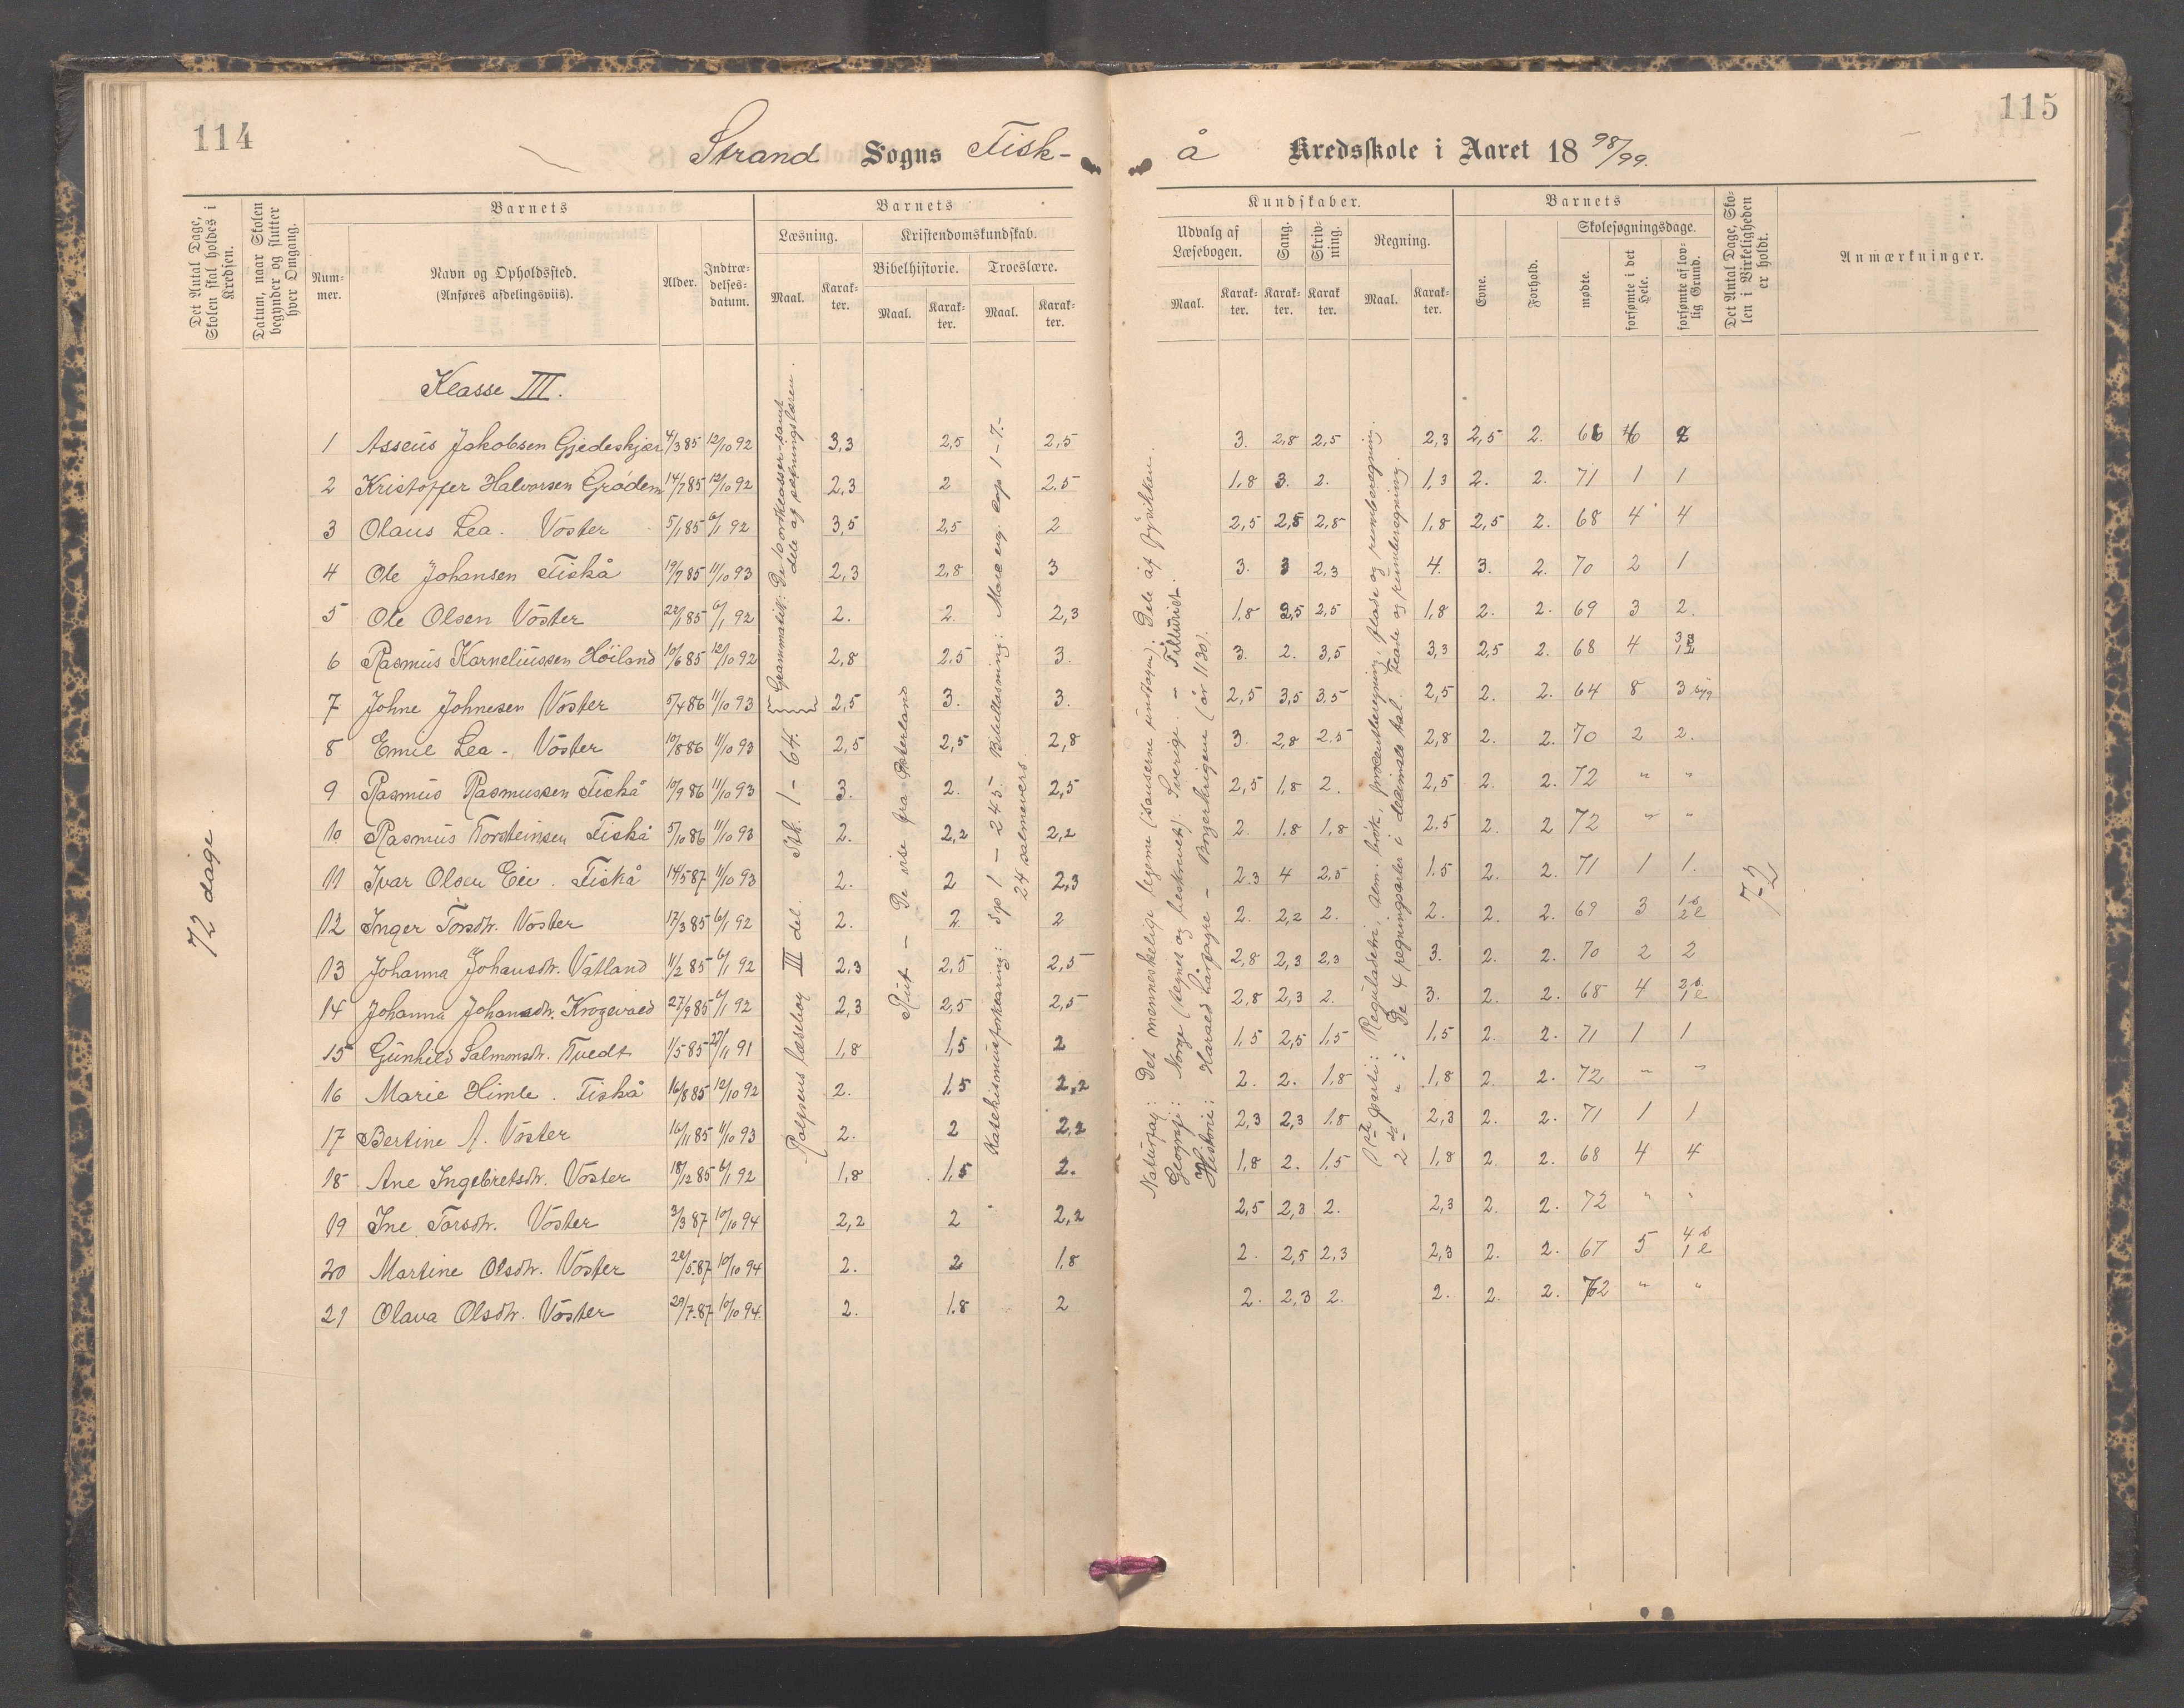 114
Strand Sogns Fisk-
å Kredsskole i Aaret 1898/99.
115
Det Antal Dage, Skolen skal holdes i Kredsen.
Datum, naar Skolen begynder og slutter hver Omgang.
Barnets
Num-mer.
Navn og Opholdssted. (Anføres afdelingsviis).
Alder.
Indtræ-delses-datum.
Barnets
Læsning.
Maal.
Karak-ter.
Kristendomskundskab.
Bibelhistorie.
Maal.
Karak-ter.
Troeslære.
Maal.
Karak-ter.
Kundskaber.
Udvalg af Læsebogen.
Maal.
Karak-ter.
Sang.
Karak-ter.
Skriv-ning.
Karak-ter.
Regning.
Maal.
Karak-ter.
Barnets
Evne.
Forhold.
Skolesøgningsdage.
mødte.
forsømte i det Hele.
forsømte af lov-lig Grund.
Det Antal Dage, Sko-len i Virkeligheden er holdt.
Anmærkninger.
72 dage.
Klasse III.
1 Asseus Jakobsen Gjedeskjær 4/3 85 12/10 92 3,3 2,5 2,5 3. 2,8 2,5 2,3 2,5 2. 66 6
2 Kristoffer Halvorsen Grødem 14/7 85 12/10 92 2,3 2 2.5 1,8 3. 2. 1,3 2. 2. 71 1 1
3 Olaus Lea. Voster 5/1 85 6/1 92 3,5 2,5 2 2,5 2,8 2,8 1,8 2,5 2. 68 4 4
4 Ole Johansen Fiskå 19/7 85 11/10 93 2,3 2,8 3 3. 3 2,3 4. 3. 2. 70 2 1
5 Ole Olsen Voster 22/1 85 6/1 92 2. 2. 2,3 1,8 2,5 2,5 1,8 2. 2. 69 3 2.
6 Rasmus Korneliussen Höiland 10/6 85 12/10 92 2,8 2.5 3. 3. 2. 3,5 3,3 2,5 2. 68 4
7 Johne Johnesen Voster 5/4 86 11/10 93 2,5 3. 3. 2,5 3,5 3,5 2,5 2. 2. 64 8 3 syg
8 Emil Lea -, Voster 10/8 86 11/10 93 2,5 2,5 2,8 3. 2,8 2.5 2,8 2. 2. 70 2 2.
9 Rasmus Rasmussen Fiskå 10/9 86 11/10 93 3. 2. 2,5 2,5 1,8 2. 2,5 2. 2. 72 " "
10 Rasmus Torsteinsen Fiskå 5/10 86 11/10 93 2. 2,2 2,2 2. 1,8 1,8 2.5 2. 2 72 " "
11 Ivar Olsen Eie. Fiskå 14/5 87 11/10 93 2. 2 2,3 2.3 4 2.5 1.5 2. 2. 71 1 1.
12 Inger Torsdtr. Voster 17/3 85 6/1 92 2. 2. 2 2. 2,2 2. 2. 2. 2. 69 3 1 s 2 l
13 Johanna Johansdtr. Vatland 11/2 85 6/1 92 2,3 2,5 2,5 2,8 2,3 2,3 3. 2. 2. 70 2 2
14 Johanna Johansdtr. Krogevold 27/9 85 6/1 92 2,3 2,5 2,5 2,8 2,3 2. 3. 2. 2. 68 4
15 Gunhild Salmonsdtr. Tvedt 1/5 85 27/11 91 1,8 1,5 2 1,5 2,5 1,5 1,5 2. 2. 71 1 1
16 Marie Himle. Fiskå 16/8 85 12/10 92 2. 1,5 2,2 2. 2. 1,8 1,8 2. 2. 72 " "
17 Bertine A. Voster 16/11 85 11/10 93 2. 2 2,2 2,3 2,3 1.8 2,3 2. 2. 71 1 1
18 Ane Ingebretsdtr. Voster 18/12 85 6/1 92 1,8 1,5 2. 1,8 2. 1,5 1,8 2. 2. 68 4 4
19 Ine Torsdtr. Voster 3/3 87 10/10 94 2,2 2 2,2 2,5 2,3 2. 2,3 2. 2. 72 " "
20 Martine Olsdtr. Voster 22/5 87 10/10 94 2. 2 1,8 2. 2,5 2,3 2,3 2. 2. 67 5 4 s 1 l
21 Olava Olsdtr. Voster 29/7 87 10/10 94. 2. 1.8 2 2. 2,3 2. 2. 2. 2. 72 " "
Rolfsens læsebog III del. Stk. 1 - 64. Grammatik: De 10 ordklasser samt
dele af sætningslæren.
Rut - De vise fra Østerland
Katekismusforklaring: Sp 1 - 245. Bibellæsning: Mark. evg. cap 1-7.-
24 salmevers.
Naturfag: Det menneskelige legeme (sanserne undtagen). Dele af fysikken.
Geografi: Norge (tegnet og beskrevet). Sverige. -
Historie: Harald hårfagre - Borgerkrigene (år 1130).
1ste parti: Reguladetri, alm. brök, procentberegning, flade og rumberegning.
2det " : De 4 regningsarter i decimaltal. Flade og rumberegning.
72